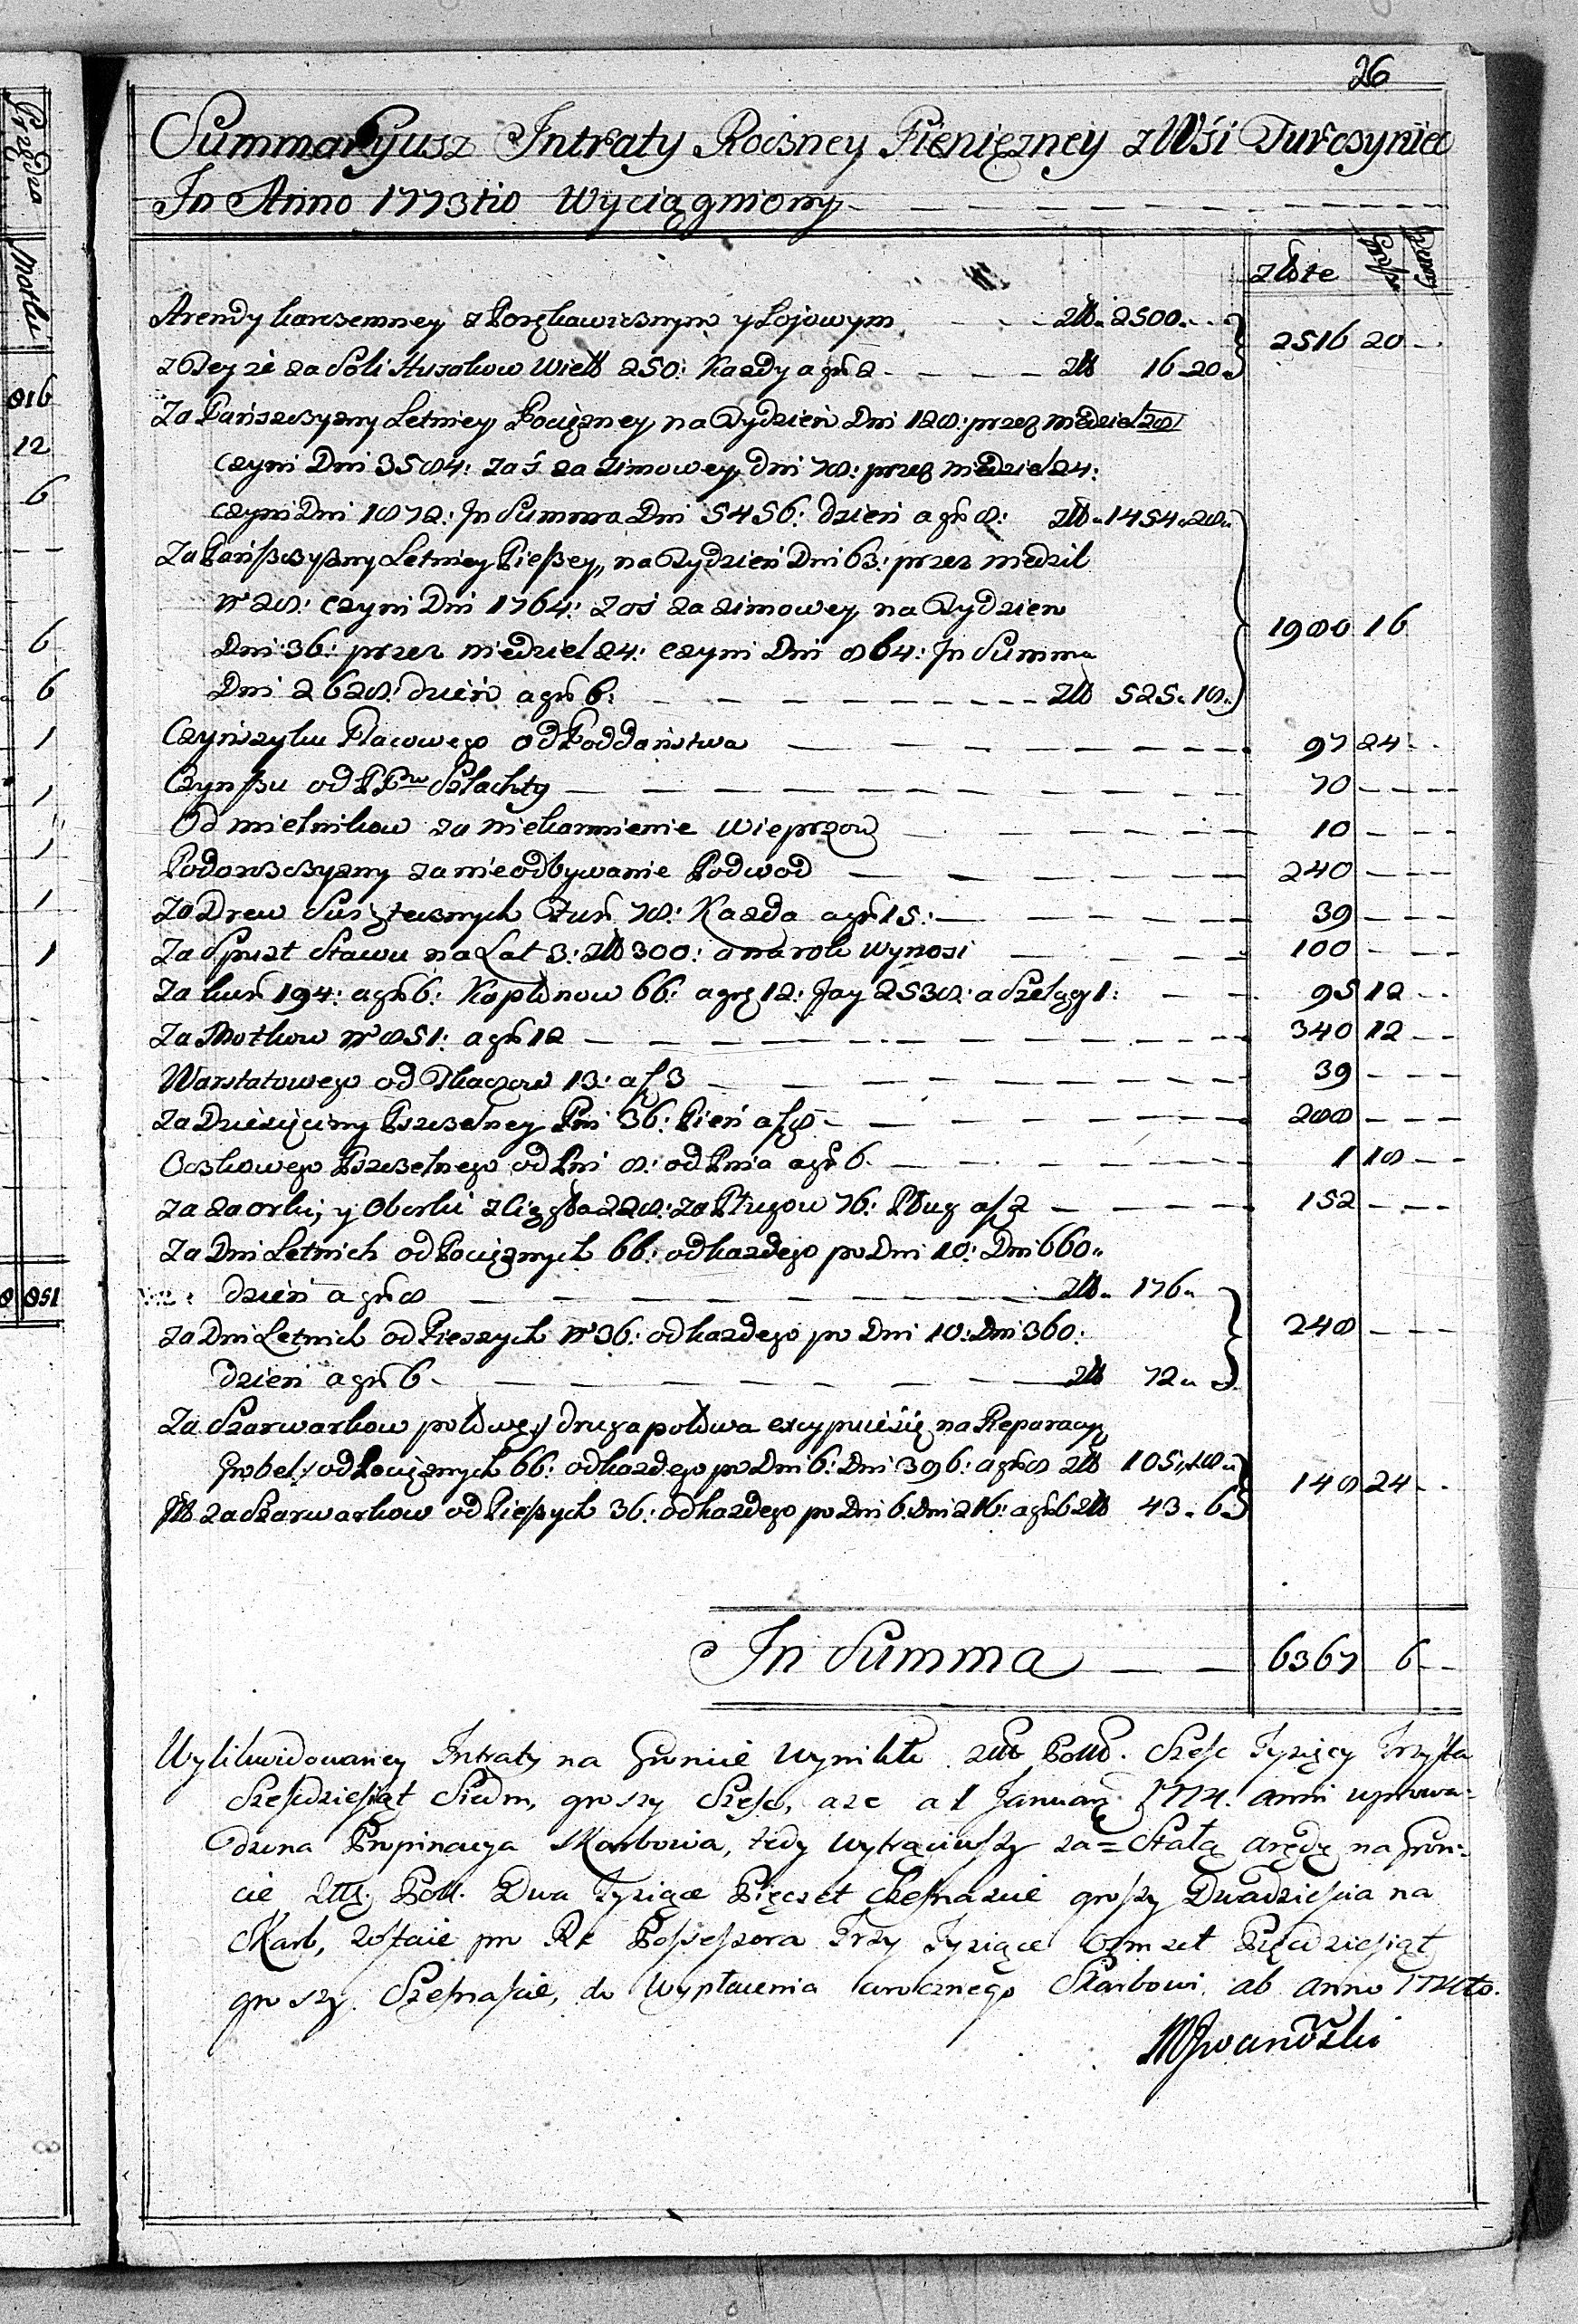 26
Summaryusz Intraty Roczney Pieniężney z Wsi Turcsynie
In Anno 1773tio Wyciągniony
złote Grosze
Arendy karczemney z Porękawicznym y Łojowym złł. 2500
2516 20
zteyże za Soli Husakow Wiell 250: Kazdy a gr 2 złł 16 20
Za Pańszczyzny Letniey Pociężney na Tydzień Dni 128: przez niedziel 28
czyni Dni 3584: zaś za zimowey dni 78: przez niedziel 24:
czyni Dni 1872: In Summa Dni 5456: dzień a gr 8: złł 1454 28
Za Pańszczyzny Letniey Pieszey, na Tydzień Dni 63: przez niedziel
Nr 28: czyni Dni 1764: zaś za zimowey na Tydzien
1980 16
Dni 36: przez niedziel 24: czyni Dni 864: In Summa
Dni 2628: dzień a gr 6: złł 525. 18
Czynszyku Placowego od Poddaństwa 97 24
Czynszu od PPw Szlachty 70
Od mielnikow za niekarmienie Wieprzow 10
Podorszczyzny za nieodbywanie Podwod 240
Za Drew Suszt Fur 78: Kazda a gr 15: 39
Za Spust Stawu na Lat 3: złł 300: a na rok wynosi 100
Za kur 194: a gr 6: Kapłonow 66: a gr 12: Jay 2538: a Szeląg 1: 95 12
Za Motkow Nr 851: a gr 12 340 12
Warstatowego od Tkaczow 13: a f 3 39
Za Dziesięciny Pszczelney Pni 36: Pień a f 8 288
Oczkowego Pszczelnego od Pni 8: od Pnia a gr 6 1 18
Za zaorki, y Oborki z Cięgła 228: za Pługow 76: Pług a f 2 152
Za Dni Letnich od Pociężnych 66: od kazdego po Dni 10: Dni 660
dzień a gr 8 złł. 176
Za Dni Letnich od Pieszych Nr 36: od kazdego po Dni 10: Dni 360: 248
dzień a gr 6 złł 72
Za Szarwarkow połowę/ druga połowa excypuie się na Reparacyę
Grobel/ od Pociężnych 66: od kazdego po Dni 6: Dni 396: a gr 8 złł 105. 18
148 24
za Szarwarkow od Pieszych 36: od kazdego po Dni 6: Dni 216: a gr 6 złł 43. 6
In Summa 6367 6
Wylikwidowaney Intraty na Groncie wynikło złł Poll. Sześc Tysięcy Trzysta
Sześdziesiąt Siedm, groszy Sześc, a ze a 1 January 1774. anni uprowa-
dzona Propinacya Skarbowa, tedy wytrąciwszy za= Stałą arędę na Gron-
cie Złł. Poll. Dwa Tysiące Pięcset Szesnascie groszy Dwadziescia na
Skarb, zostaie pro Rt Possessora Trzy Tysiące Ozmset Pięcdziesiąt
groszy Szesnascie, do wypłacenia corocznego Skarbowi ab anno 1774to.
MIwanowski